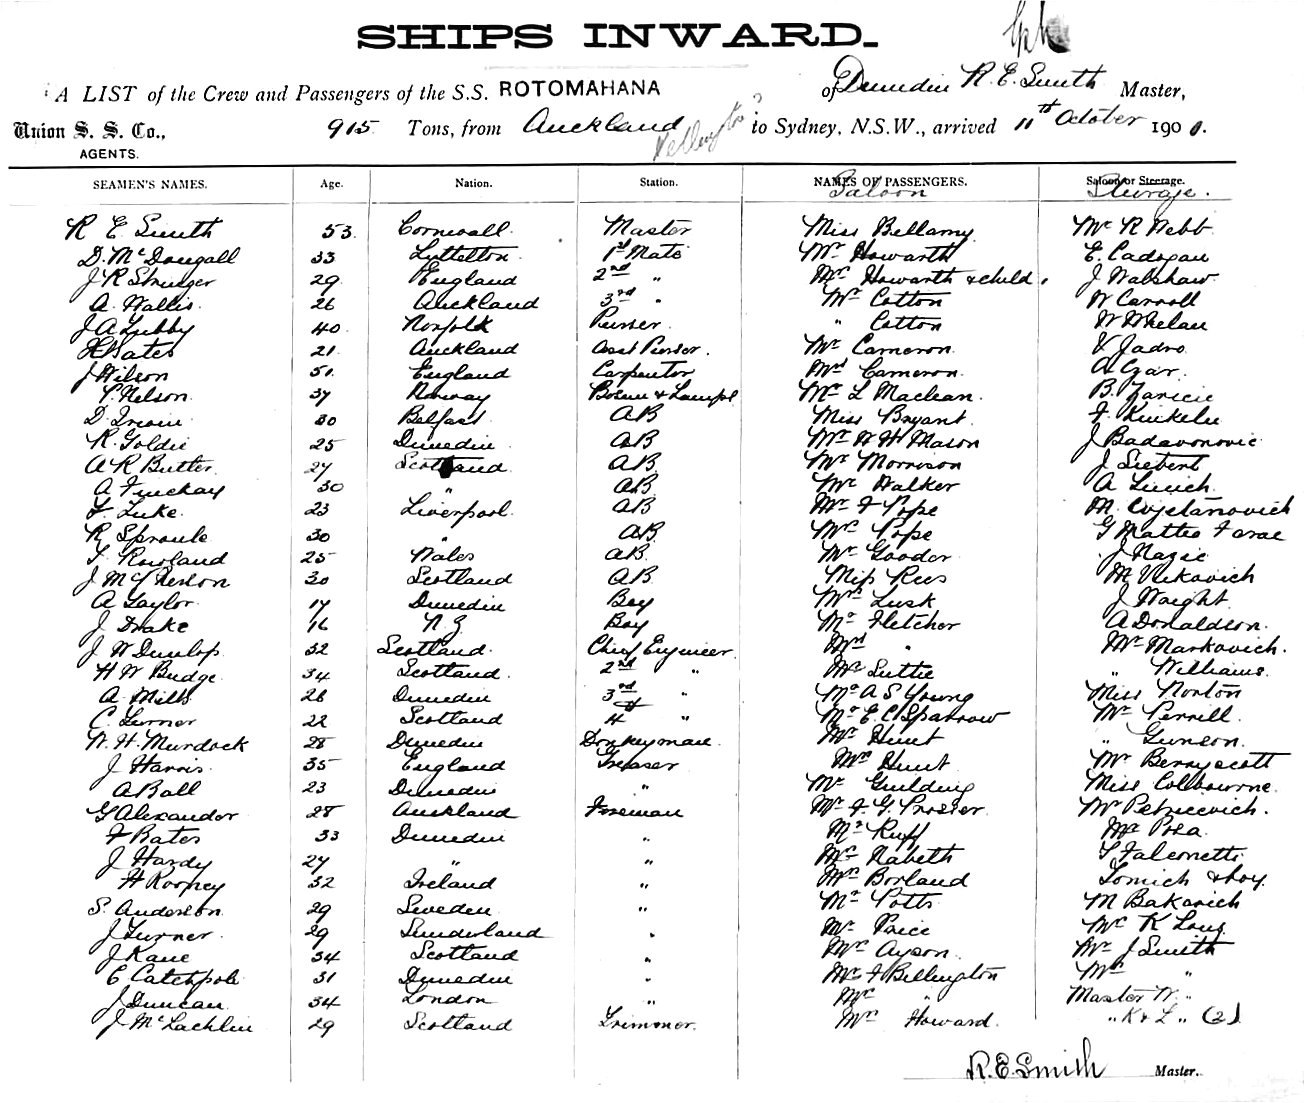 SHIPS INWARD.
A LIST of the Crew and Passengers of the S.S. ROTOMAHANA of Dunedin R. E. Smith Master,
Union S. S. Co., 915 Tons, from Auckland Wellington to Sydney, N.S.W., arrived 11th October 1901.
AGENTS.
SEAMEN'S NAMES. Age. Nation. Station. NAMES OF PASSENGERS. Saloon or Steerage.
Saloon Steerage.
R E Smith 53 Cornwall. Master Miss Bellamy Mr R Webb
D. McDougall 33 Lyttelton. 1st Mate Mr Howarth E. Cadogan
J R Stringer 29 England 2nd " Mrs Howarth & child. J Walshaw
A. Wallis 26 Auckland 3rd " Mr Cotton W Carroll
J A Lubby 40 Norfolk Purser. " Cotton W Whelan
H Bates 21 Auckland Asst Purser. Mr Cameron. V Jadro
J Wilson 51 England Carpenter Mrs Cameron.
P. Nelson 37 Norway Bosun & Lamps Mr L Maclean. B.
D. Irwin 30 Belfast AB Miss Bryant.
R. Goldie 25 Dunedin AB Mr W H Mason J Badavonovic
A R Butler 27 Scotland AB Mr Morrison J Siebert
A 30 " AB Mr Walker A
F. Luke 23 Liverpool AB Mr F Pope M. Cvjetanovich
R Sproule 30 " AB Mrs Pope G Matteo
T. Rowland 25 Wales AB. Mr Gooder J Nazic
J McPherson 30 Scotland AB Miss Rees M Vlekovich
A Taylor 17 Dunedin Boy Mrs Lusk J Waight
J Drake 16 N Z Boy Mr Fletcher A Donaldson.
J W Dunlop 32 Scotland. Chief Engineer. Mrs " Mr Markovich.
H W Budge 34 Scotland. 2nd " Mr Suttie " Williams.
A. Mills 26 Dunedin 3rd " Mr A S Young Miss Norton
C. Turner 22 Scotland 4th " Mr E C Sparrow Mr Perrill.
W. H. Murdock 28 Dunedin Donkeyman. Mr Hunt " Gunson.
J Harris 35 England Greaser Mrs Hunt Mr Berryscott
A Ball 23 Dunedin " Mr Guilding Miss Colbourne.
G Alexander 28 Auckland Fireman Mr F. G. Prosser Mr Petricevich.
F Bates 33 Dunedin " Mr Ruff Mr Posa
J Hardy 27 " " Mr Nabeth S Falconetti
H Rooney 32 Ireland " Mrs Borland Tomich & boy.
S. Anderson 29 Sweden " Mr Potts M Bakovich
J Turner 29 Sunderland " Mr Price Mr K Long
J Kane 34 Scotland " Mr Ayson. Mr J Smith
E Catchpole 31 Dunedin " Mr F Billington Mrs "
J Duncan 34 London " Mrs " Master W. "
J McLachlin 29 Scotland Trimmer. Mrs Howard. " K & L " (2)
R. E. Smith Master.